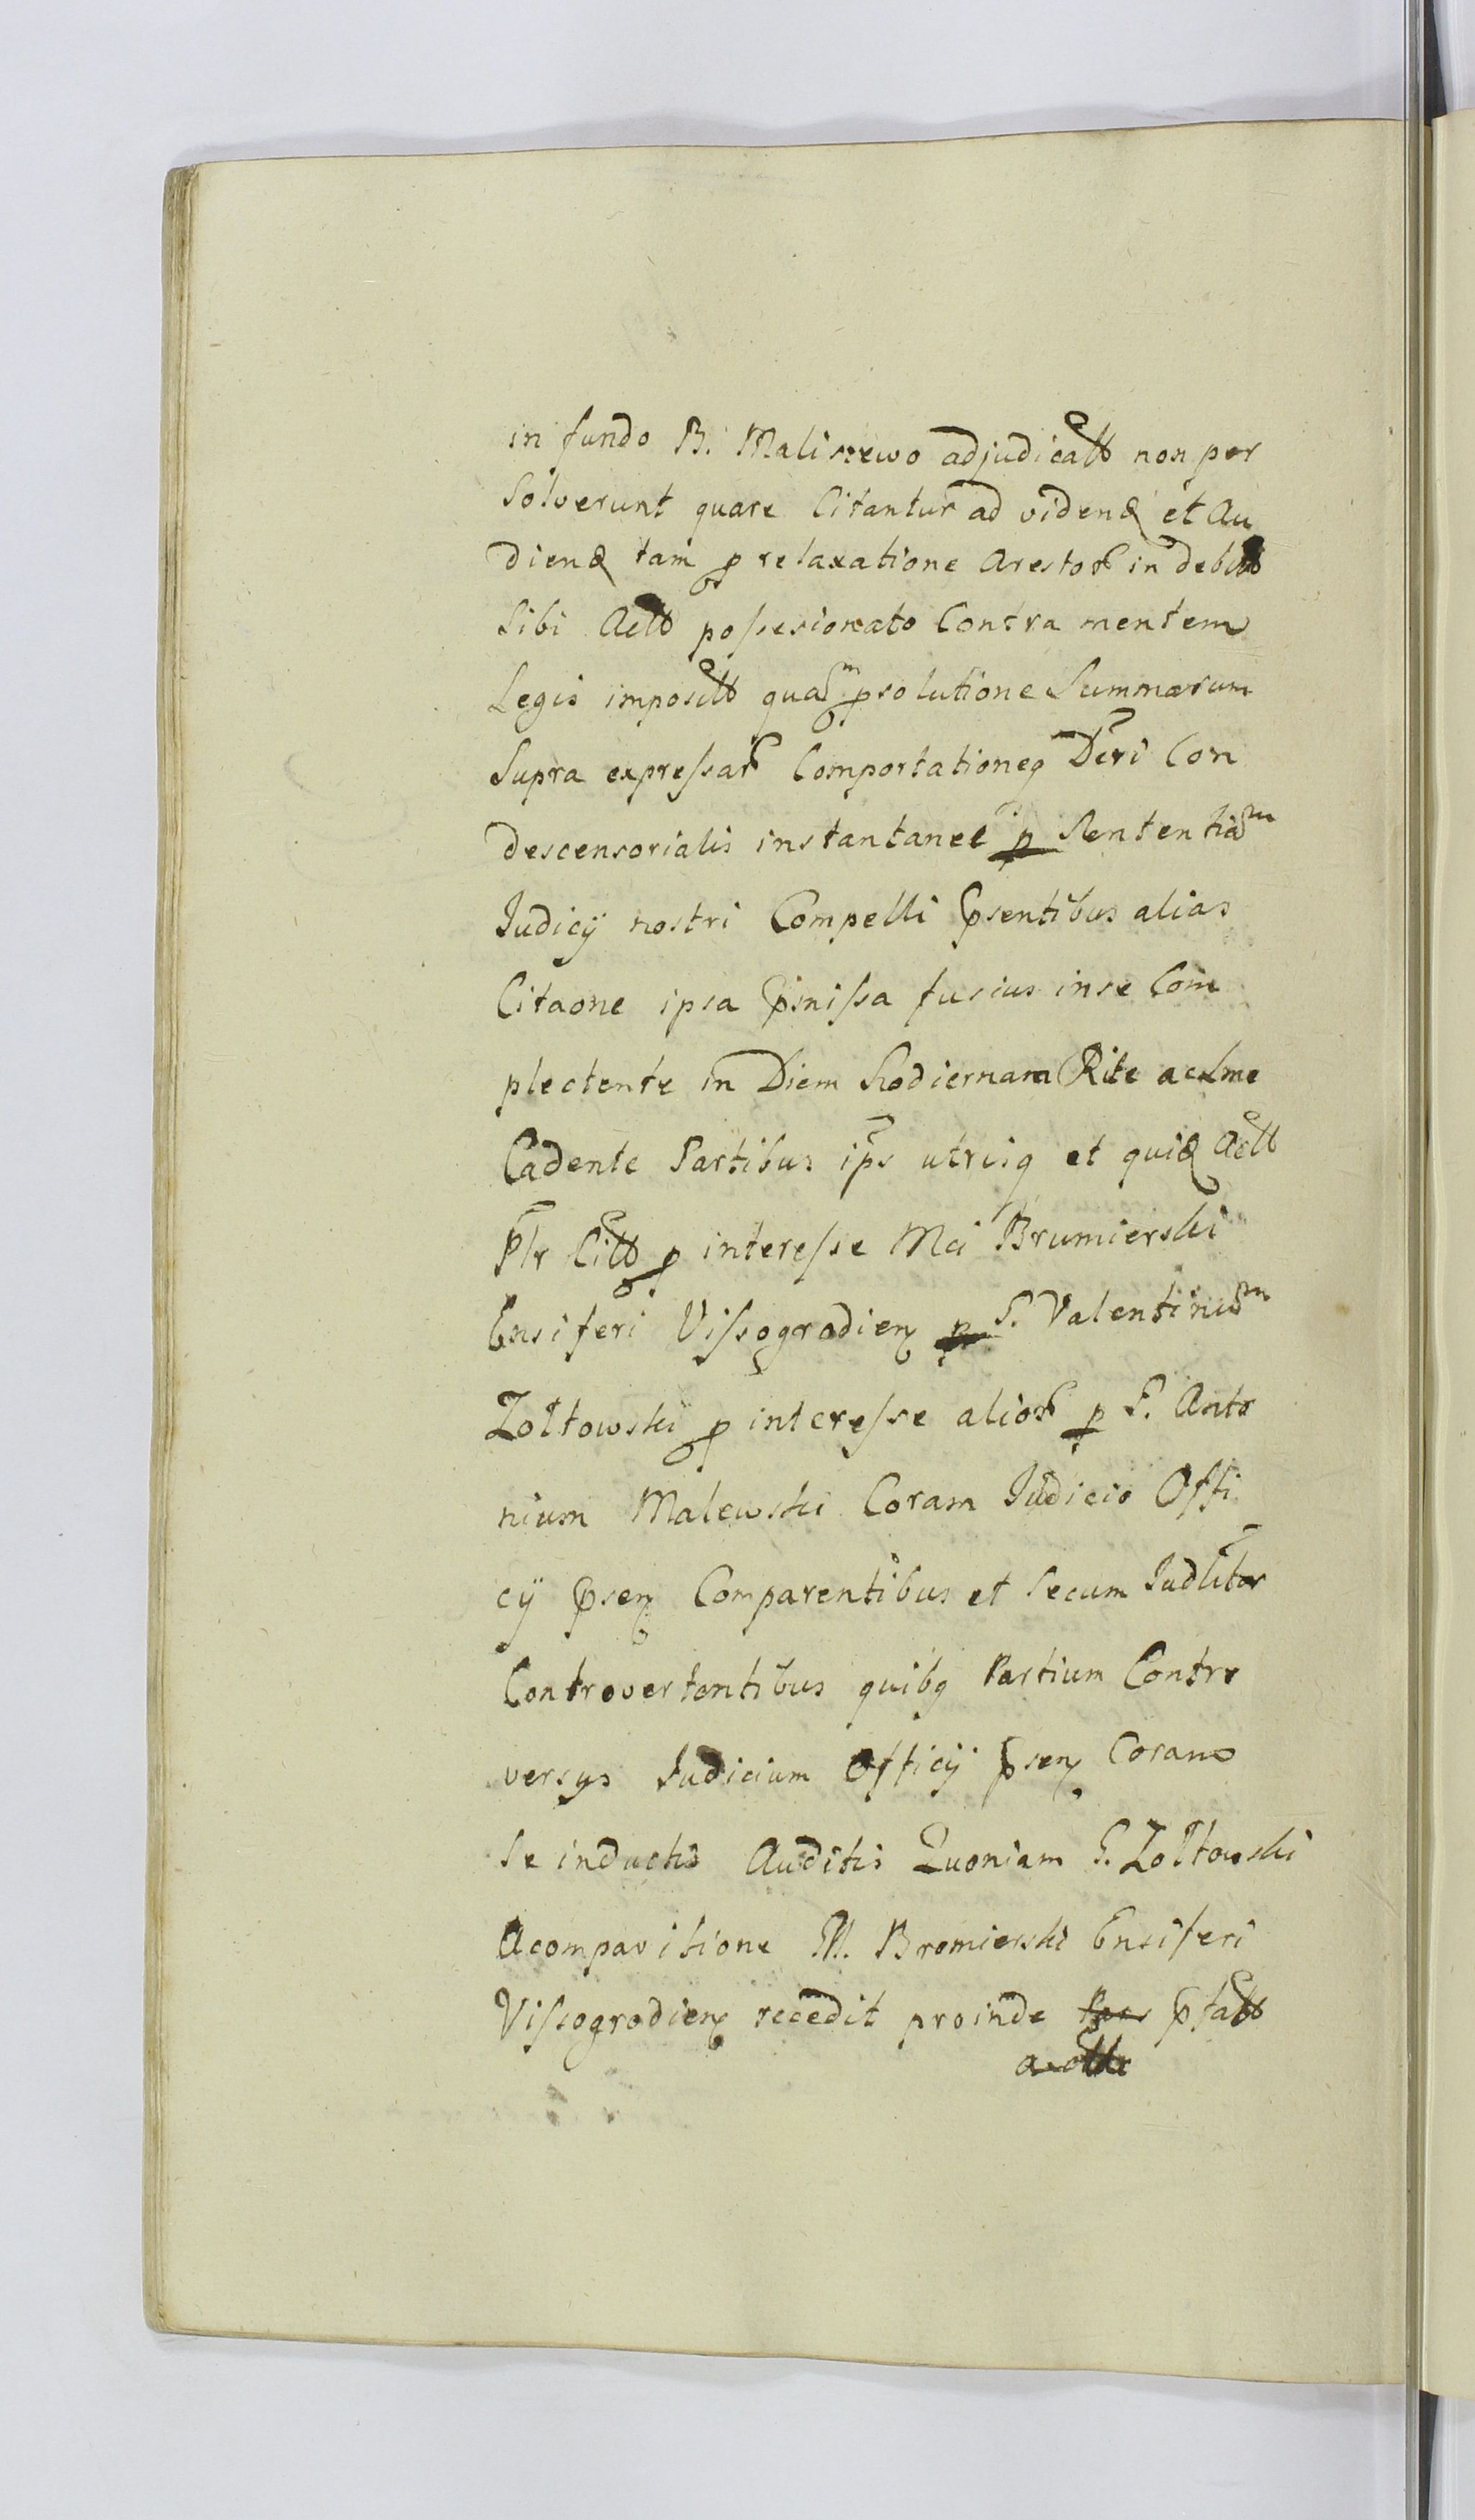 in fundo B. Maliszewo adjudicatt non per
solverunt quare Citantur ad videnđ et Au
dienđ tam p relaxatione Arestor in debitt
sibi Actt possesionato Contra mentem
Legis impositt quam psolutione Summarum
Supra expressar Comportationeq Dcri Con
descensorialis instantanee p Sententiam
Judicÿ nostri Compelli psentibus alias
Citaone ipsa pmissa fusius in se Com
plectente in Diem Hodiernam Rite aclme
Cadente Partibus ips utrisq et quid Actt
Plr Citt p interesse Mci Brumierski
Ensiferi Vissogrodien p G. Valentinum
Zołtowski p interesse alior p G. Anto
nium Malewski Coram Judicio Offi
cÿ psen Comparentibus et secum Judliter
Controvertentibus quibq Partium Contro
versys Judicium Officÿ psen Coram
se inductis Auditis Quoniam G. Zołtowski
Acomparitione M. Bromierski Ensiferi
Vissogrodien recedit proinde ptatt